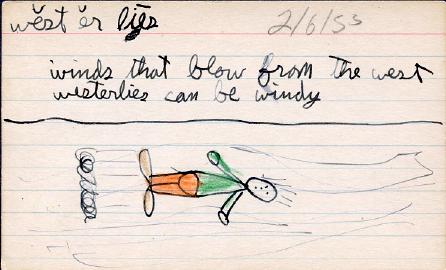 wĕst ĕr līes
2/6/53
winds that blow from the west
westerlies can be windy